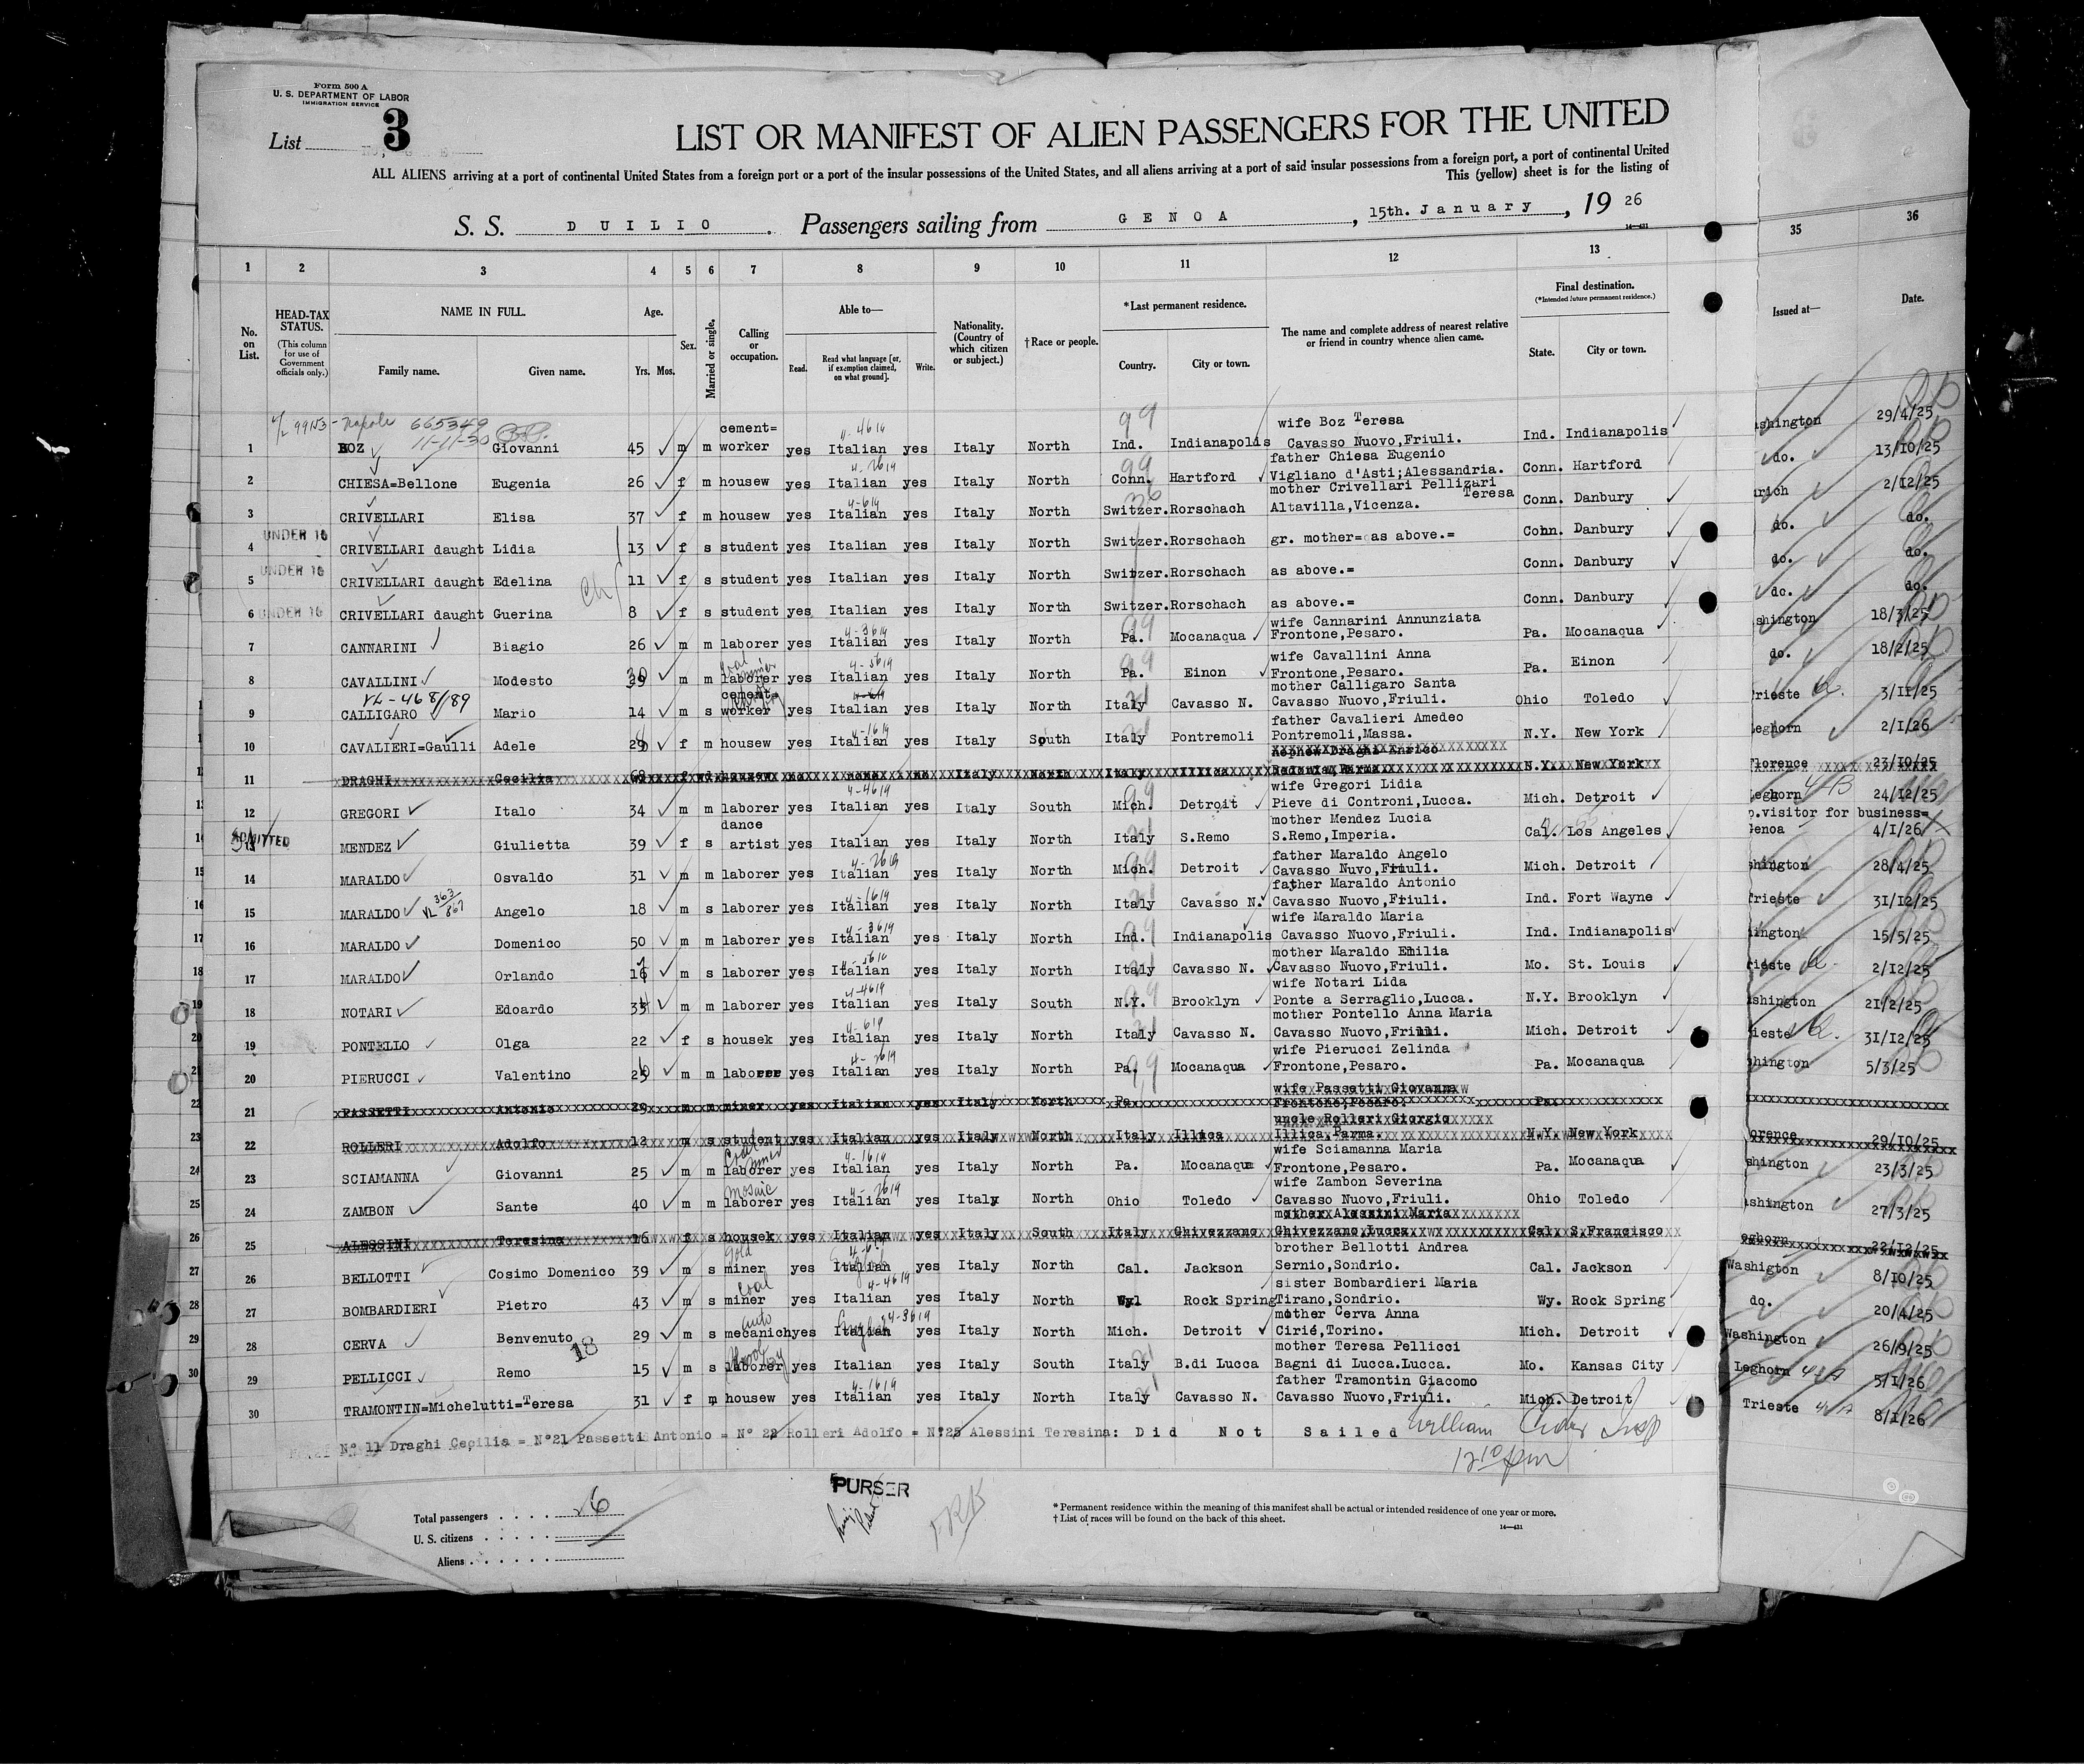 Form 500 A
U. S. DEPARTMENT OF LABOR
IMMIGRATION SERVICE
List 3
LIST OR MANIFEST OF ALIEN PASSENGERS FOR THE UNITED
ALL ALIENS arriving at a port of continental United States from a foreign port or a port of the insular possessions of the United States, and all aliens arriving at a port of said insular possessions from a foreign port, a port of continental United
This (yellow) sheet is for the listing of
S. S. DUILIO. Passengers sailing from GENOA, 15th. January, 19 26
14—431
1 2 3 4 5 6 7 8 9 10 11 12 13 35 36
No. on List.
HEAD-TAX STATUS.
(This column for use of Government officials only.)
NAME IN FULL.
Family name. Given name.
Age.
Yrs. Mos.
Sex.
Married or single.
Calling or occupation.
Able to—
Read. Read what language [or, if exemption claimed, on what ground]. Write.
Nationality. (Country of which citizen or subject.)
† Race or people.
*Last permanent residence.
Country. City or town.
The name and complete address of nearest relative or friend in country whence alien came.
Final destination.
(*Intended future permanent residence.)
State. City or town.
Issued at— Date.
665349
11-11-30
cement= wife Boz Teresa
1 BOZ Giovanni 45 m m worker yes Italian yes Italy North Ind. Indianapolis Cavasso Nuovo,Friuli. Ind. Indianapolis shington 29/4/25
father Chiesa Eugenio
2 CHIESA=Bellone Eugenia 26 f m housew yes Italian yes Italy North Conn. Hartford Vigliano d'Asti;Alessandria. Conn. Hartford do. 13/10/25
mother Crivellari Pelligari Teresa
3 CRIVELLARI Elisa 37 f m housew yes Italian yes Italy North Switzer. Rorschach Altavilla,Vicenza. Conn. Danbury urich 2/12/25
UNDER 16
4 CRIVELLARI daught Lidia 13 f s student yes Italian yes Italy North Switzer. Rorschach gr. mother= as above.= Conn. Danbury do. do.
UNDER 16
5 CRIVELLARI daught Edelina 11 f s student yes Italian yes Italy North Switzer. Rorschach as above.= Conn. Danbury do. do.
6 UNDER 16 CRIVELLARI daught Guerina 8 f s student yes Italian yes Italy North Switzer. Rorschach as above.= Conn. Danbury do. do.
wife Cannarini Annunziata
7 CANNARINI Biagio 26 m m laborer yes Italian yes Italy North Pa. Mocanaqua Frontone,Pesaro. Pa. Mocanaqua shington 18/3/25
wife Cavallini Anna
8 CAVALLINI Modesto 30 m m laborer yes Italian yes Italy North Pa. Einon Frontone,Pesaro. Pa. Einon do. 18/2/25
VL-468/189 cement= mother Calligaro Santa
9 CALLIGARO Mario 14 m s worker yes Italian yes Italy North Italy Cavasso N. Cavasso Nuovo,Friuli. Ohio Toledo Trieste 3/11/25
father Cavalieri Amedeo
10 CAVALIERI=Gaulli Adele 29 f m housew yes Italian yes Italy South Italy Pontremoli Pontremoli,Massa. N.Y. New York Leghorn 2/1/26
nephew Draghi Enrico
11 DRAGHI Cecilia 68 f housew no none no Italy North Italy Illica Bedonia,Parma. N.Y. New York Florence 23/10/25
wife Gregori Lidia
12 GREGORI Italo 34 m m laborer yes Italian yes Italy South Mich. Detroit Pieve di Controni,Lucca. Mich. Detroit Leghorn 24/12/25
dance mother Mendez Lucia visitor for business=
ADMITTED MENDEZ Giulietta 39 f s artist yes Italian yes Italy North Italy S.Remo S.Remo,Imperia. Cal. Los Angeles Genoa 4/1/26
father Maraldo Angelo
14 MARALDO Osvaldo 31 m m laborer yes Italian yes Italy North Mich. Detroit Cavasso Nuvo,Friuli. Mich. Detroit shington 28/4/25
VL 363/867 father Maraldo Antonio
15 MARALDO Angelo 18 m s laborer yes Italian yes Italy North Italy Cavasso N. Cavasso Nuovo,Friuli. Ind. Fort Wayne Trieste 31/12/25
wife Maraldo Maria
16 MARALDO Domenico 50 m m laborer yes Italian yes Italy North Ind. Indianapolis Cavasso Nuovo,Friuli. Ind. Indianapolis hington 15/5/25
mother Maraldo Emilia
17 MARALDO Orlando m s laborer yes Italian yes Italy North Italy Cavasso N. Cavasso Nuovo,Friuli. Mo. St. Louis rieste 2/12/25
wife Notari Lida
18 NOTARI Edoardo m m laborer yes Italian yes Italy South N.Y. Brooklyn Ponte a Serraglio,Lucca. N.Y. Brooklyn shington 21/2/25
mother Pontello Anna Maria
19 PONTELLO Olga 22 f s housek yes Italian yes Italy North Italy Cavasso N. Cavasso Nuovo,Friuli. Mich. Detroit rieste 31/12/25
wife Pierucci Zelinda
20 PIERUCCI Valentino m m laborer yes Italian yes Italy North Pa. Mocanaqua Frontone,Pesaro. Pa. Mocanaqua hington 5/3/25
wife Passetti Giovanna
21 PASSETTI Antonio 29 m m miner yes Italian yes Italy North Pa. Frontone,Pesaro. Pa.
uncle Rolleri Giorgio
22 ROLLERI Adolfo 12 m s student yes Italian yes Italy North Italy Illica Illica,Parma. N.Y. New York orence 29/10/25
Coal miner wife Sciamanna Maria
23 SCIAMANNA Giovanni 25 m m laborer yes Italian yes Italy North Pa. Mocanaqua Frontone,Pesaro. Pa. Mocanaqua shington 23/3/25
mosaic wife Zambon Severina
24 ZAMBON Sante 40 m m laborer yes Italian yes Italy North Ohio Toledo Cavasso Nuovo,Friuli. Ohio Toledo shington 27/3/25
mother Alessini Maria
25 ALESSINI Teresina 16 f s housek yes Italian yes Italy South Italy Ghivezzano Ghivezzano,Lucca. Cal. S.Francisco eghorn 22/12/25
gold brother Bellotti Andrea
26 BELLOTTI Cosimo Domenico 39 m s miner yes Italian yes Italy North Cal. Jackson Sernio,Sondrio. Cal. Jackson Washigton 8/10/25
Coal sister Bombardieri Maria
27 BOMBARDIERI Pietro 43 m s miner yes Italian yes Italy North Wy. Rock Spring Tirano,Sondrio. Wy. Rock Spring do. 20/4/25
auto mother Cerva Anna
28 CERVA Benvenuto 29 m s mecanich yes Italian yes Italy North Mich. Detroit Cirié,Torino. Mich. Detroit Washington 26/9/25
18 mother Teresa Pellicci
29 PELLICCI Remo 15 m s laborer yes Italian yes Italy South Italy B.di Lucca Bagni di Lucca.Lucca. Mo. Kansas City Leghorn 5/1/26
father Tramontin Giacomo
30 TRAMONTIN=Michelutti=Teresa 31 f m housew yes Italian yes Italy North Italy Cavasso N. Cavasso Nuovo,Friuli. Mich. Detroit Trieste 8/1/26
N° 11 Draghi Cecilia = N°21 Passetti Antonio = N° 22 Rolleri Adolfo = N°25 Alessini Teresina: Did Not Sailed William
PURSER
Total passengers 26
U. S. citizens
Aliens
* Permanent residence within the meaning of this manifest shall be actual or intended residence of one year or more.
† List of races will be found on the back of this sheet.
14—431